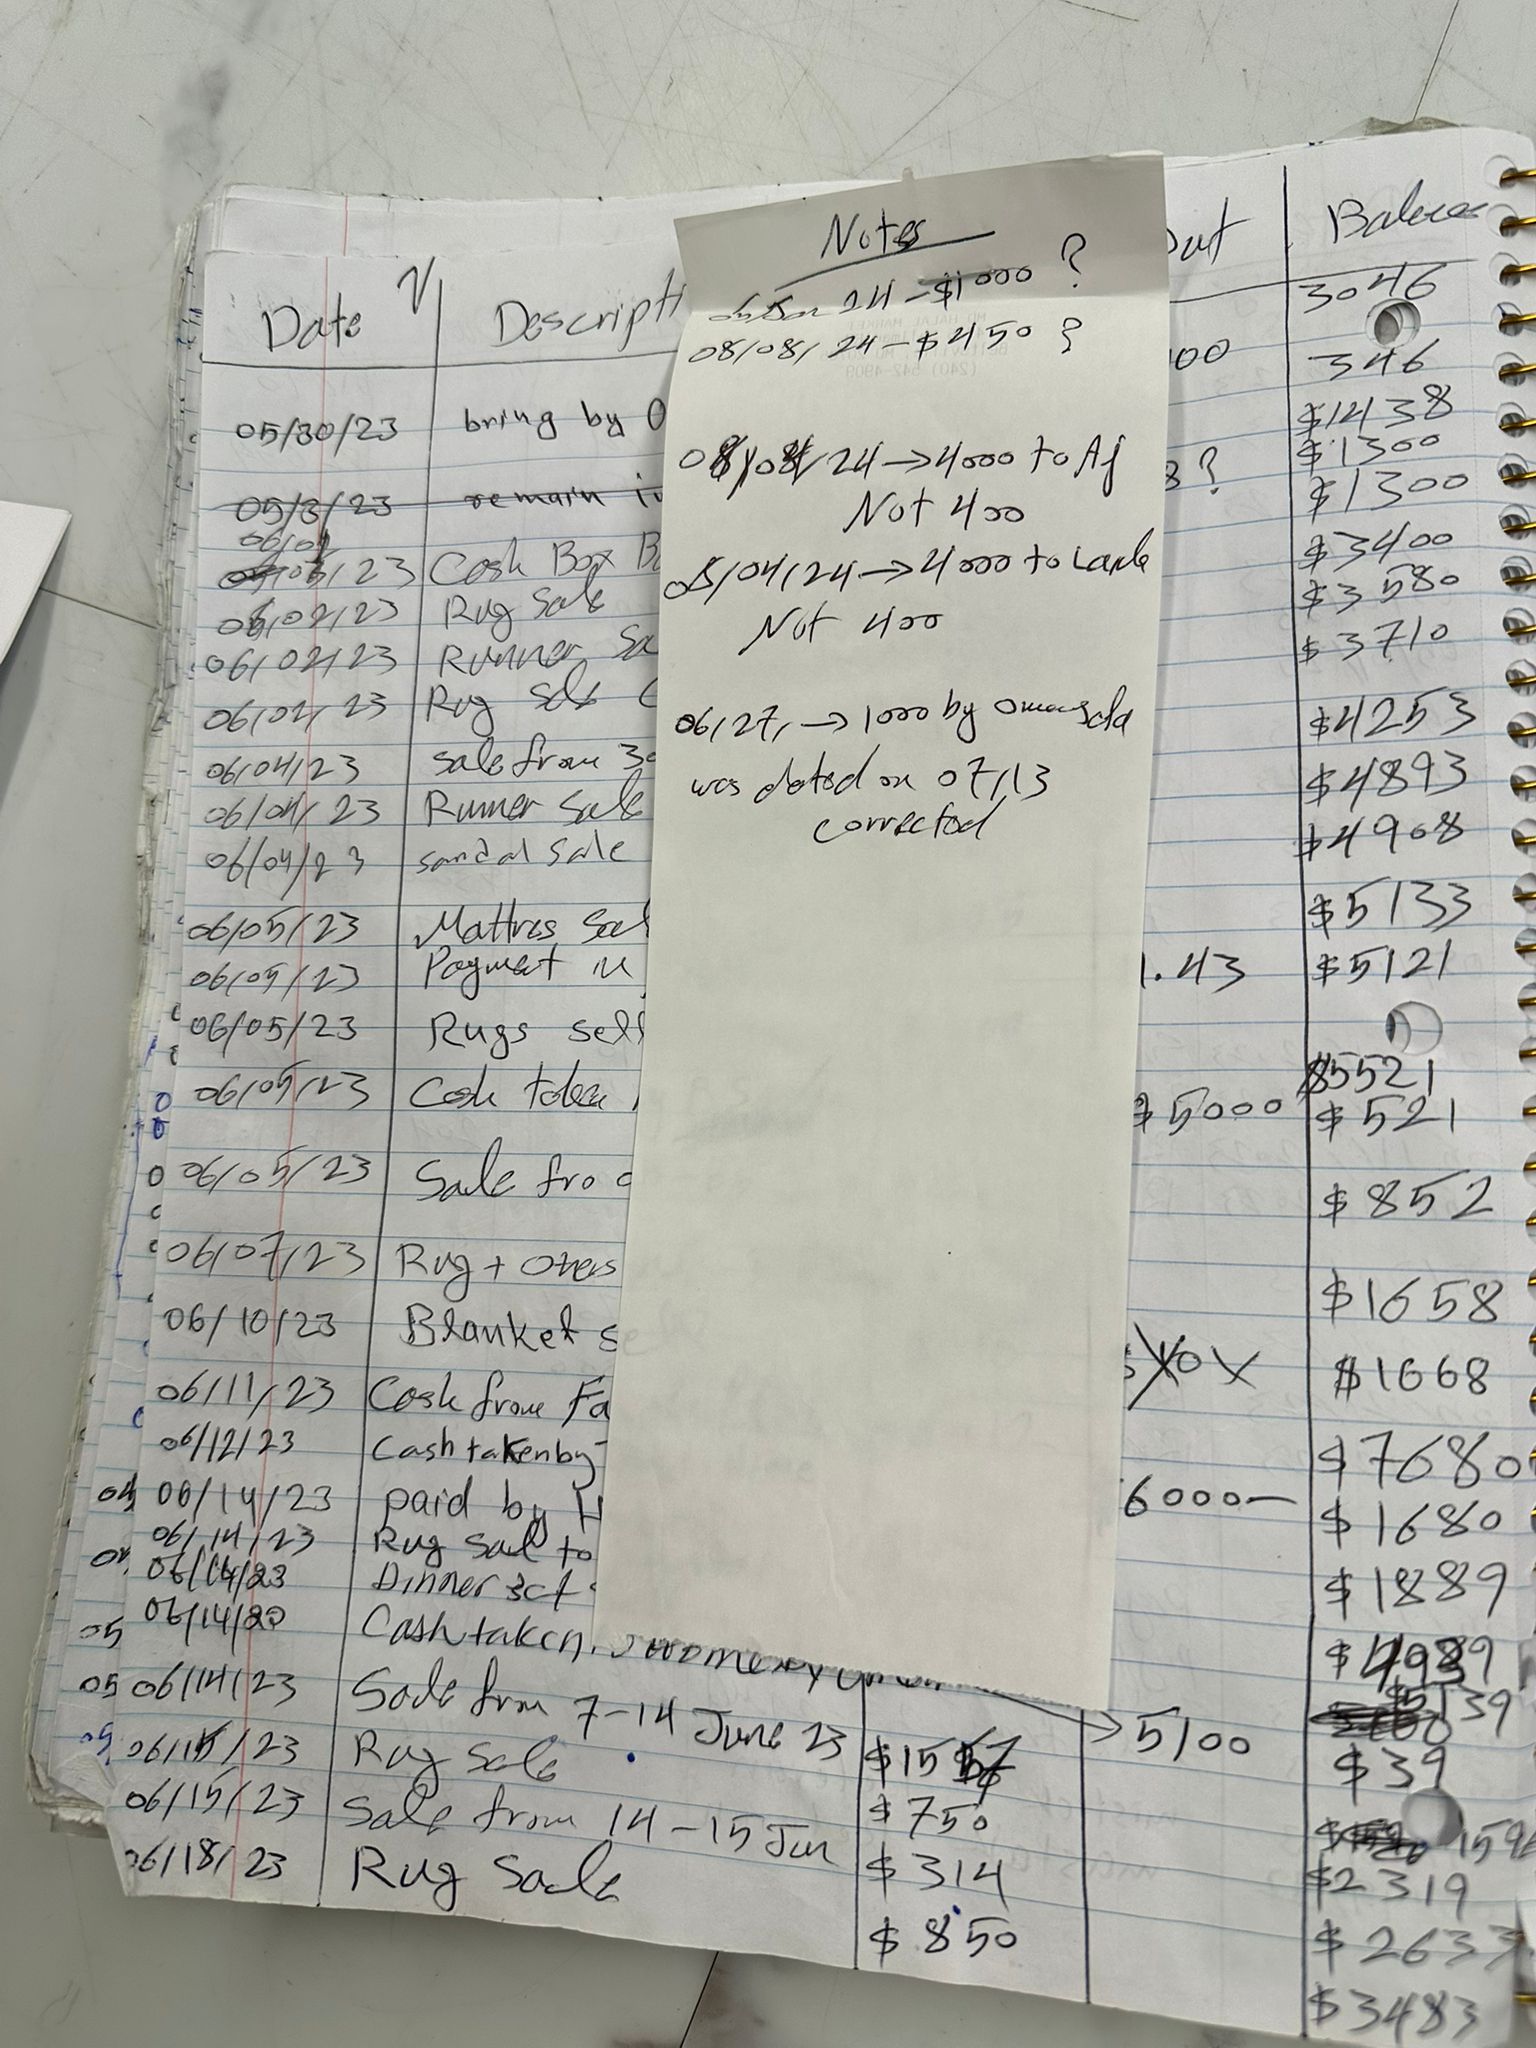 Notes
05 Jan 24 - $1000 ?
08/08/24 - $450 ?
08/08/24 → 4000 to Aj
Not 400
05/04/24 → 4000 to
Not 400
06/27, → 1000 by
was dated on 07/13
corrected
Date Descripti out Balance
3046
00 346
05/30/23 bring by O $1438
$1300
05/3/23 remain i 3? $1300
06/01
/23 Cash Box B $3400
06/02/23 Rug Sale $3580
06/02/23 Runner Sa $3710
06/02/23 Rug Sale
06/04/23 Sale from 30 $4253
06/04/23 Runner Sale $4893
06/04/23 sandal sale $4908
06/05/23 Mattres Sal $5133
06/05/23 Payment in 1.43 $5121
06/05/23 Rugs sell
$5521
06/05/23 Cash taken $5000 $521
06/05/23 Sale fro $852
06/07/23 Rug + others $1658
06/10/23 Blanket se $1668
06/11/23 Cash from Fa $7680
06/12/23 Cash taken by 6000- $1680
06/14/23 paid by H $1889
06/14/23 Rug Sale to
06/14/23 Dinner set
06/14/23 Cash taken. 5100 $39
06/14/23 Sale from 7-14 June 23 $15
06/15/23 Rug Sale $750 $2319
06/15/23 Sale from 14-15 Jun $314 $2633
06/18/23 Rug Sale $850 $3483